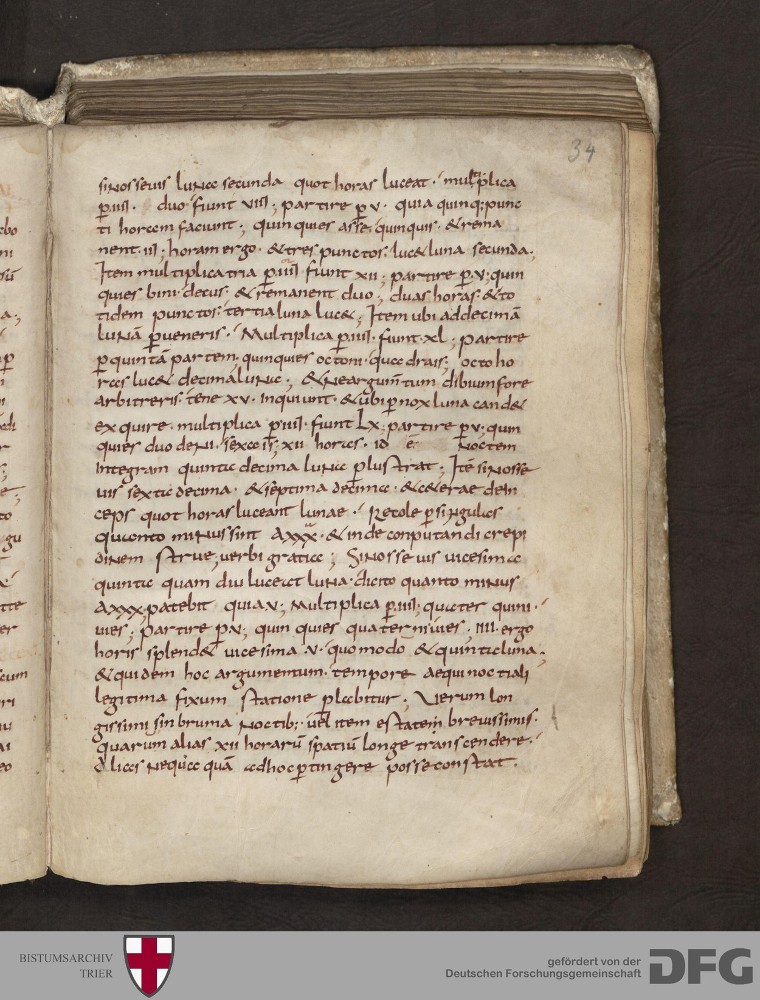 34
sinosseuis luna secunda quot horas luceat · multiplica
p̄ iiii · duo fiunt viii ; partire p̄ v · quia quinq; punc
ti horam faciunt ; quinquies asse · quinquis · & rema
nent · iii ; horam ergo · & tres punctos · luc& luna secunda ;
Item multiplica tria p̄ iiii fiunt xii ; partire p̄ v ; quin
quies bini · decus · & remanent duo ; duas horas · & to
tidem punctos · tertia luna luc& ; Item ubi ad decimā
lunā p̄ueneris · Multiplica p̄ iiii · fiunt · xl ; partire
p̄ quintā partem · quinquies octoni · quadrais ; octo ho
ras luc& decimā luna ; & ne argumtum dibium fore
arbitreris · tene xv · inquiunt · & ubi p̄nox luna cand&
exquire · multiplica p̄ iiii · fiunt Lx ; partire p̄ v · quin
quies duodeni · sexcois ; xii horas · id ē noctem
integram quinta decima luna plustrat ; Itē si nosse
uis sexta decima · & septima decima · & c&erae dein
ceps quot horas luceant lunae · Recole p̄ singulas
quanto minus sint a xxx · & inde conputandi crepi
dinem strue ; uerbi gratia ; Si nosse uis uicesima
quinta quam diu luceat luna · dicito quanto minus
a xxx · patebit quia v ; Multiplica p̄ iiii ; quater quini ·
uies ; partire p̄ v ; quin quies quaterni uies ; iiii · ergo
horis splend& uicesima · v · quomodo & quinta luna ;
& quidem hoc argumentum · tempore aequinoctiali
legitima fixum statione p̄labitur ; Uerum lon
gissimis in bruma noctib; · uel item estatem breuissimis ·
quarum alias xii horarū spatiū longe transcendere ·
alias nequa quā ad hoc p̄tingere posse constat ·
cbo
ni
sū
a ;
p̄
di
r
to
gu
tte
er
cum
ri
iu
ai
eo
BISTUMSARCHIV
TRIER
gefördert von der
Deutschen Forschungsgemeinschaft
DFG